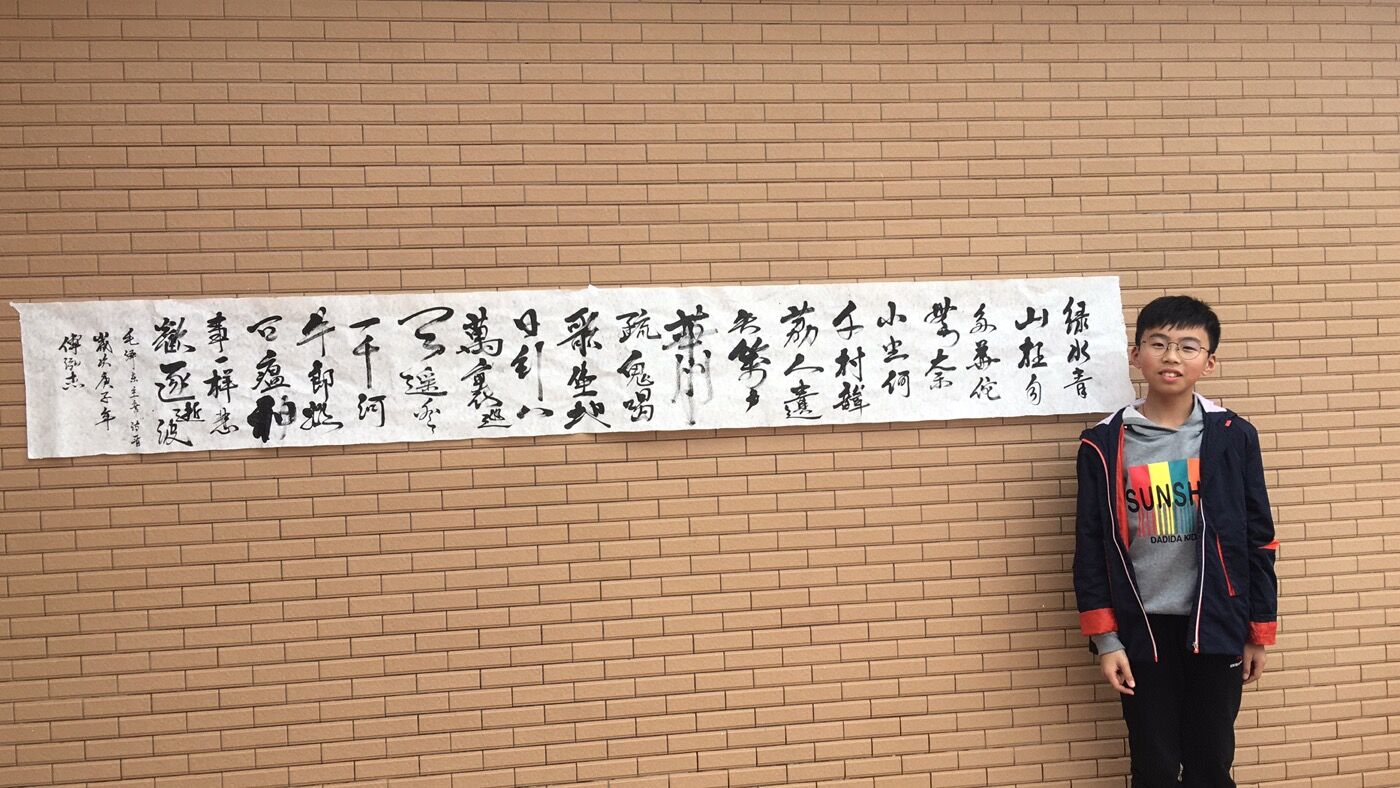 绿水青
山枉自
多華佗
無奈
小虫何
千村薜
荔人遺
矢萬戶
蕭
疏鬼唱
歌坐地
日行八
萬裏巡
天遥看
一千河
牛郎欲
问瘟神
事一样悲
歡逐逝波
毛泽东主席诗
歲次庚子年
傅杰
SUNSH
DADIDA KID